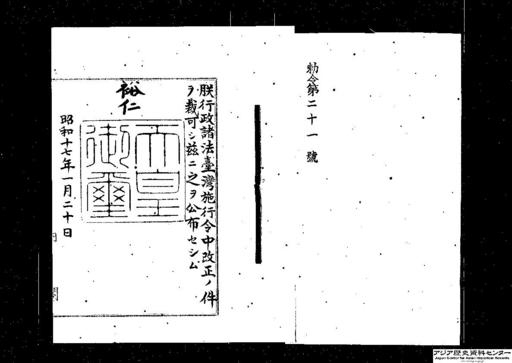 勅令第二十一號
朕行政諸法臺灣施行令中改正ノ件
ヲ裁可シ茲ニ之ヲ公布セシム
裕仁
天皇
御璽
昭和十七年一月二十日
内閣
アジア歴史資料センター
Japan Center for Asian Historical Records